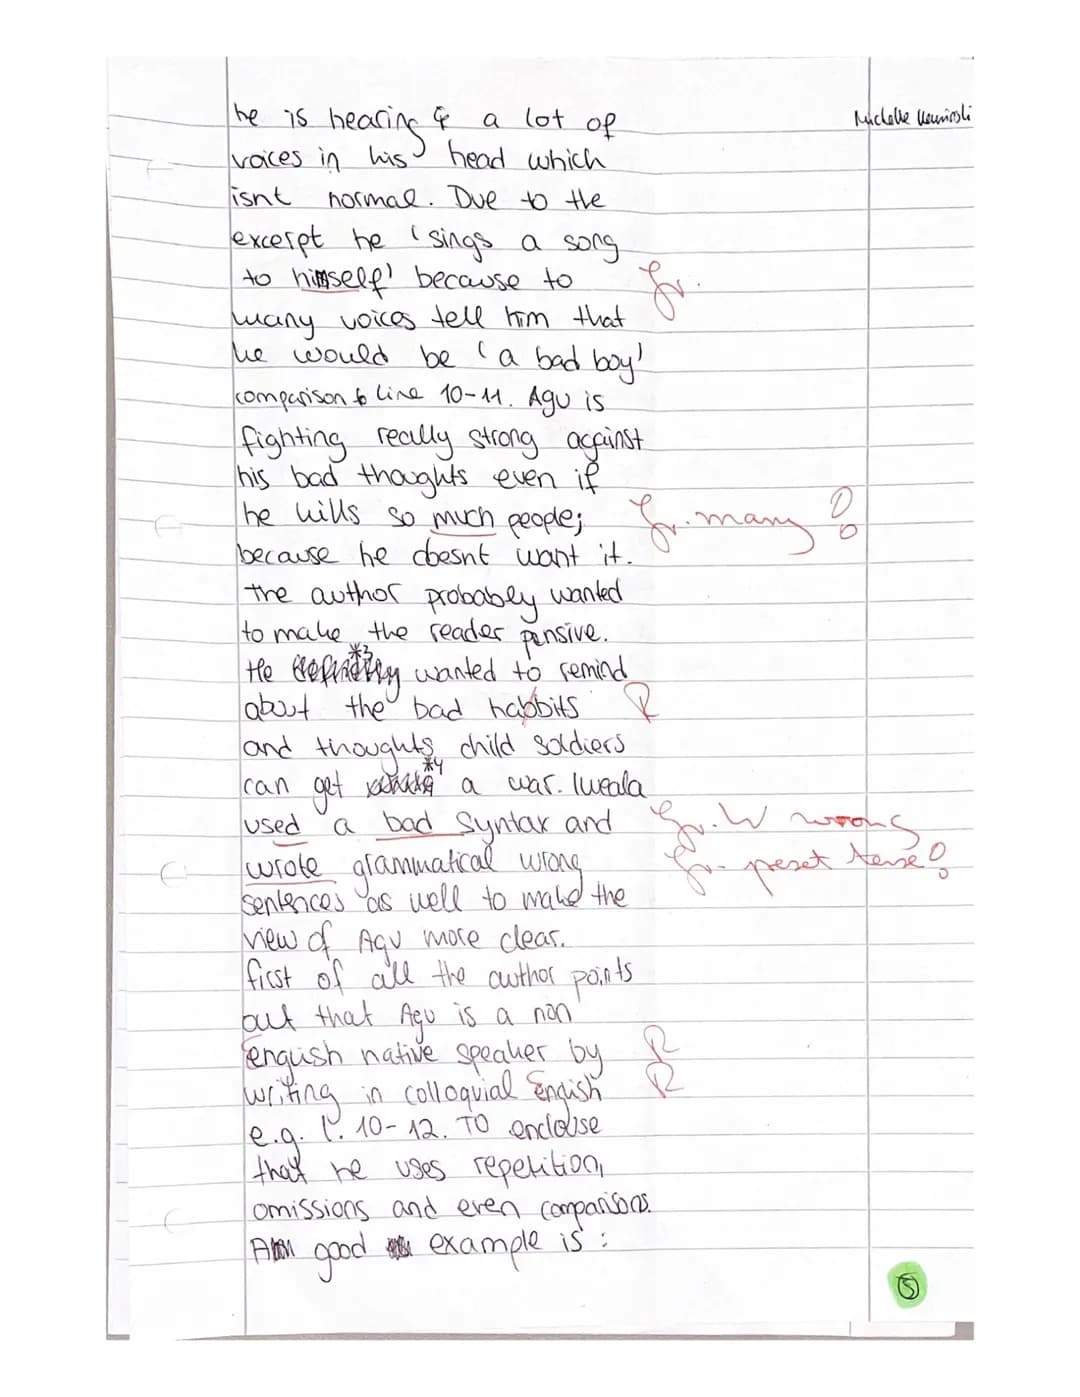 he is hearing & a lot of
voices in his head which
isnt normal. Due to the
excerpt he 'sings a song
to himself' because to
many voices tell him that
he would be 'a bad boy'
comparison to Line 10-11. Agu is
fighting really strong against
his bad thoughts even if
he kills so much people;
because he doesnt want it.
the author probably wanted
to make the reader pensive.
He *3 wanted to remind
about the bad habbits
and thoughts child soldiers
can get *4 a war. Iweala
used a bad syntax and
wrote grammatical wrong
sentences as well to make the
view of Agu more clear.
first of all the author points
out that Agu is a non
English native speaker by
writing in colloquial English
e.g. l. 10-12. TO enclouse
that he uses repetition,
omissions and even comparisons.
A good example is :
Michelle
Gr.
Gr. many !
R
Gr. W wrong
Gr. preset tense!
R
R
5